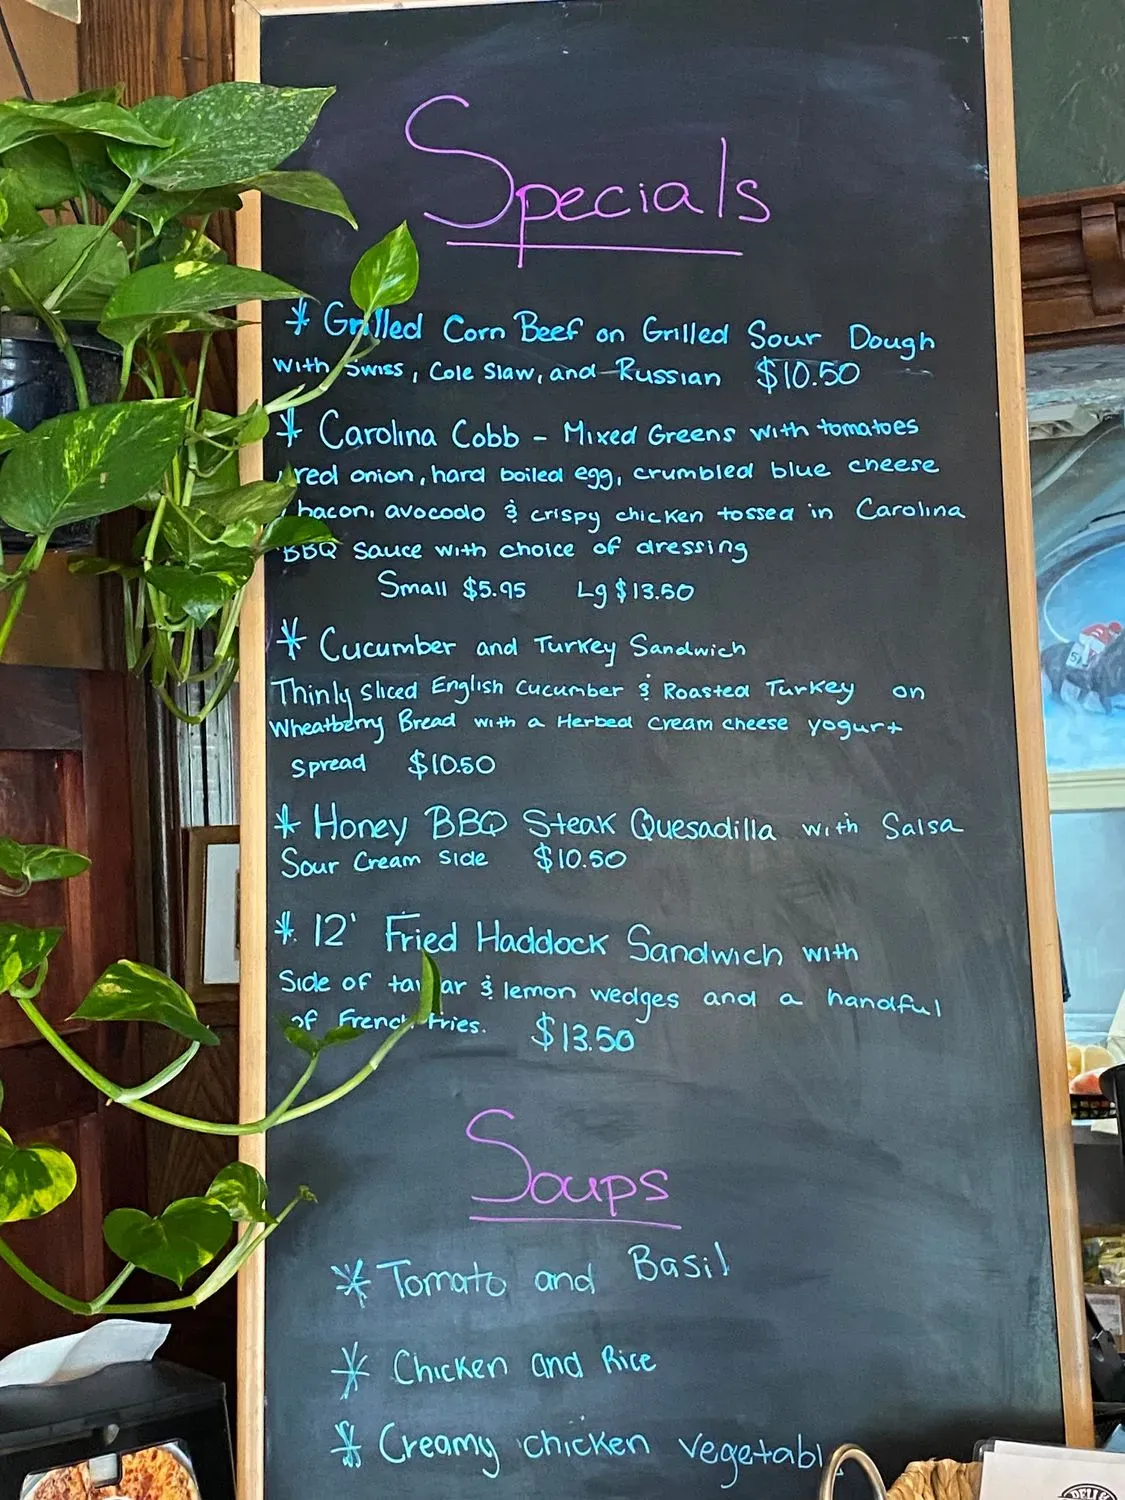 Specials
* Grilled Corn Beef on Grilled Sour Dough
with Swiss, Cole Slaw, and Russian $10.50
* Carolina Cobb - Mixed Greens with tomatoes
, red onion, hard boiled egg, crumbled blue cheese
, bacon, avocodo & crispy chicken tossed in Carolina
BBQ Sauce with choice of dressing
Small $5.95 Lg $13.50
* Cucumber and Turkey Sandwich
Thinly Sliced English Cucumber & Roasted Turkey on
Wheatberry Bread with a Herbed Cream cheese yogurt
spread $10.50
* Honey BBQ Steak Quesadilla with Salsa
Sour Cream side $10.50
* 12' Fried Haddock Sandwich with
Side of tartar & lemon wedges and a handful
of French fries. $13.50
Soups
* Tomato and Basil
* Chicken and Rice
* Creamy chicken vegetabl
DELI